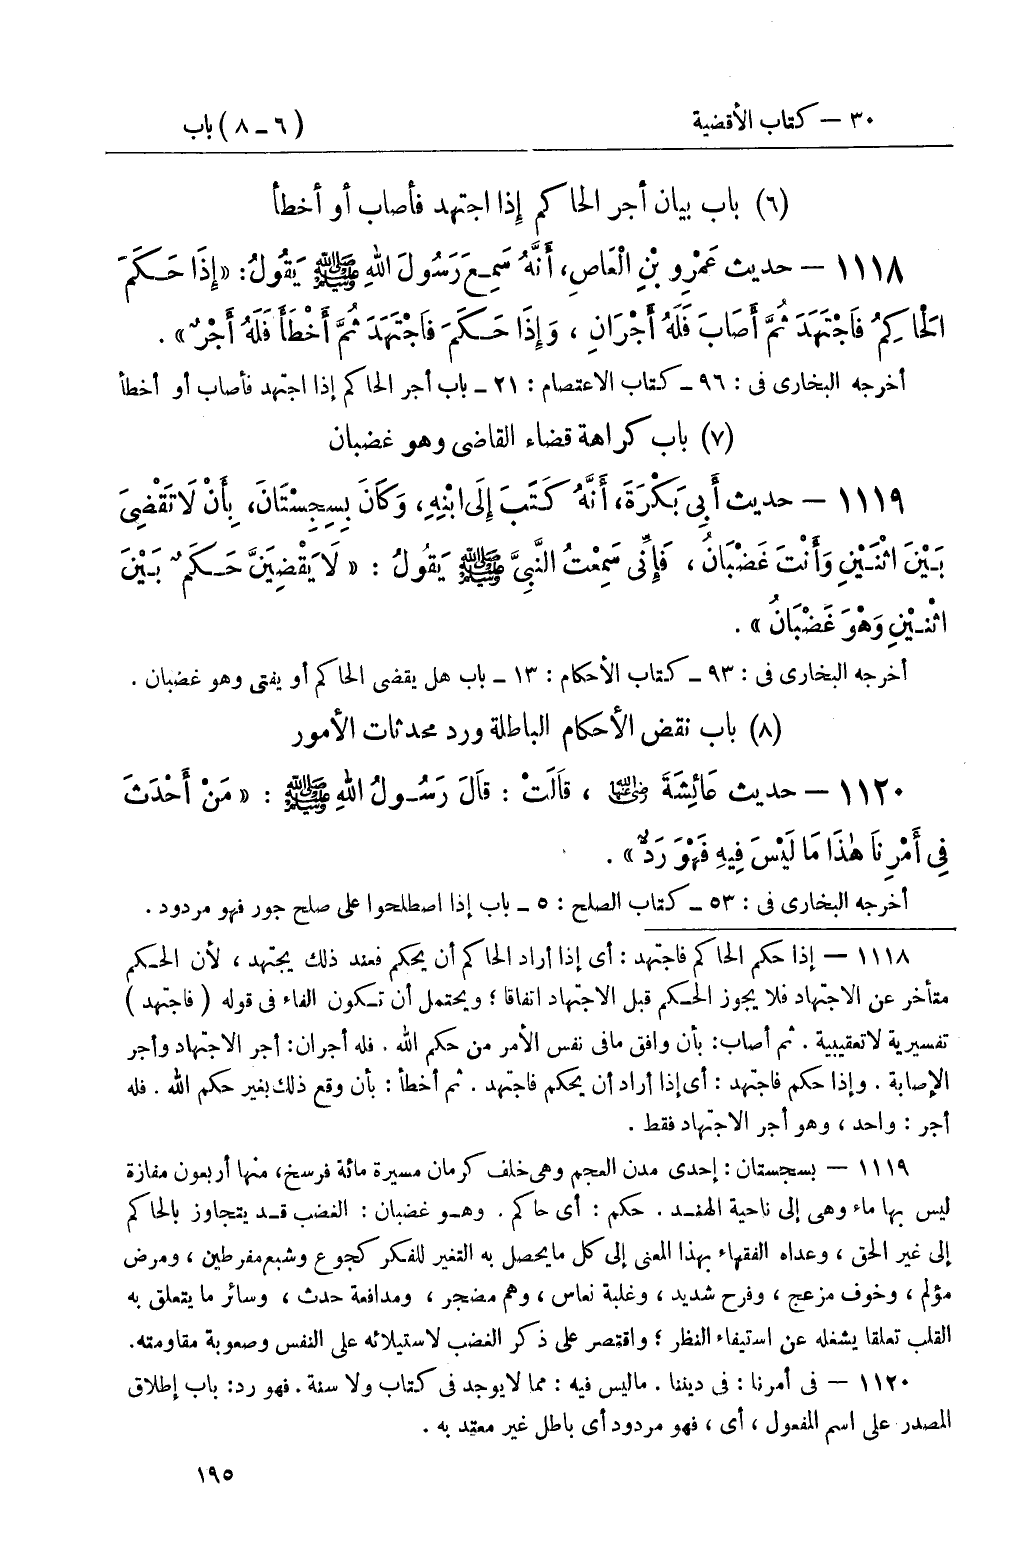 ٣٠ – كتاب الأقضية
(٦ – ٨) باب
(٦) باب بيان أجر الحاكم إذا اجتهد فأصاب أو أخطأ
١١١٨ – حديث عَمْرِو بْنِ الْعَاصِ، أَنَّهُ سَمِعَ رَسُولَ اللهِ ﷺ يَقُولُ: «إِذَا حَكَمَ
الْحَاكِمُ فَاجْتَهَدَ ثُمَّ أَصَابَ فَلَهُ أَجْرَانِ ، وَإِذَا حَكَمَ فَاجْتَهَدَ ثُمَّ أَخْطَأَ فَلَهُ أَجْرٌ» .
أخرجه البخارى فى : ٩٦ – كتاب الاعتصام : ٢١ – باب أجر الحاكم إذا اجتهد فأصاب أو أخطأ
(٧) باب كراهة قضاء القاضى وهو غضبان
١١١٩ – حديث أَبِي بَكْرَةَ، أَنَّهُ كَتَبَ إِلَى ابْنِهِ، وَكَانَ بِسِجِسْتَانَ، بِأَنْ لَا تَقْضِىَ
بَيْنَ اثْنَيْنِ وَأَنْتَ غَضْبَانُ ، فَإِنِّى سَمِعْتُ النَّبِيَّ ﷺ يَقُولُ : « لَا يَقْضِيَنَّ حَكَمٌ بَيْنَ
اثْنَيْنِ وَهْوَ غَضْبَانُ » .
أخرجه البخارى فى : ٩٣ – كتاب الأحكام : ١٣ – باب هل يقضى الحاكم أو يفتى وهو غضبان .
(٨) باب نقض الأحكام الباطلة ورد محدثات الأمور
١١٢٠ – حديث عَائِشَةَ رضي الله عنها ، قَالَتْ : قَالَ رَسُولُ اللهِ ﷺ : « مَنْ أَحْدَثَ
فِى أَمْرِنَا هٰذَا مَا لَيْسَ فِيهِ فَهْوَ رَدٌّ» .
أخرجه البخارى فى : ٥٣ – كتاب الصلح : ٥ – باب إذا اصطلحوا على صلح جور فهو مردود .
١١١٨ – إذا حكم الحاكم فاجتهد : أى إذا أراد الحاكم أن يحكم فعند ذلك يجتهد ، لأن الحكم
متأخر عن الاجتهاد فلا يجوز الحكم قبل الاجتهاد اتفاقا ؛ ويحتمل أن تكون الفاء فى قوله ( فاجتهد )
تفسيرية لا تعقيبية . ثم أصاب: بأن وافق مافى نفس الأمر من حكم الله . فله أجران: أجر الاجتهاد وأجر
الإصابة . وإذا حكم فاجتهد : أى إذا أراد أن يحكم فاجتهد . ثم أخطأ : بأن وقع ذلك بغير حكم الله . فله
أجر : واحد ، وهو أجر الاجتهاد فقط .
١١١٩ – بسجستان : إحدى مدن العجم وهى خلف كرمان مسيرة مائة فرسخ، منها أربعون مفازة
ليس بها ماء وهى إلى ناحية الهند . حكم : أى حاكم . وهو غضبان : الغضب قد يتجاوز بالحاكم
إلى غير الحق ، وعداه الفقهاء بهذا المعنى إلى كل ما يحصل به التغير للفكر كجوع وشبع مفرطين ، ومرض
مؤلم ، وخوف مزعج ، وفرح شديد ، وغلبة نعاس ، وهم مضجر ، ومدافعة حدث ، وسائر ما يتعلق به
القلب تعلقا يشغله عن استيفاء النظر ؛ واقتصر على ذكر الغضب لاستيلائه على النفس وصعوبة مقاومته.
١١٢٠ – فى أمرنا : فى ديننا . ماليس فيه : مما لا يوجد فى كتاب ولا سنة . فهو رد: باب إطلاق
المصدر على اسم المفعول ، أى ، فهو مردود أى باطل غير معتد به .
١٩٥